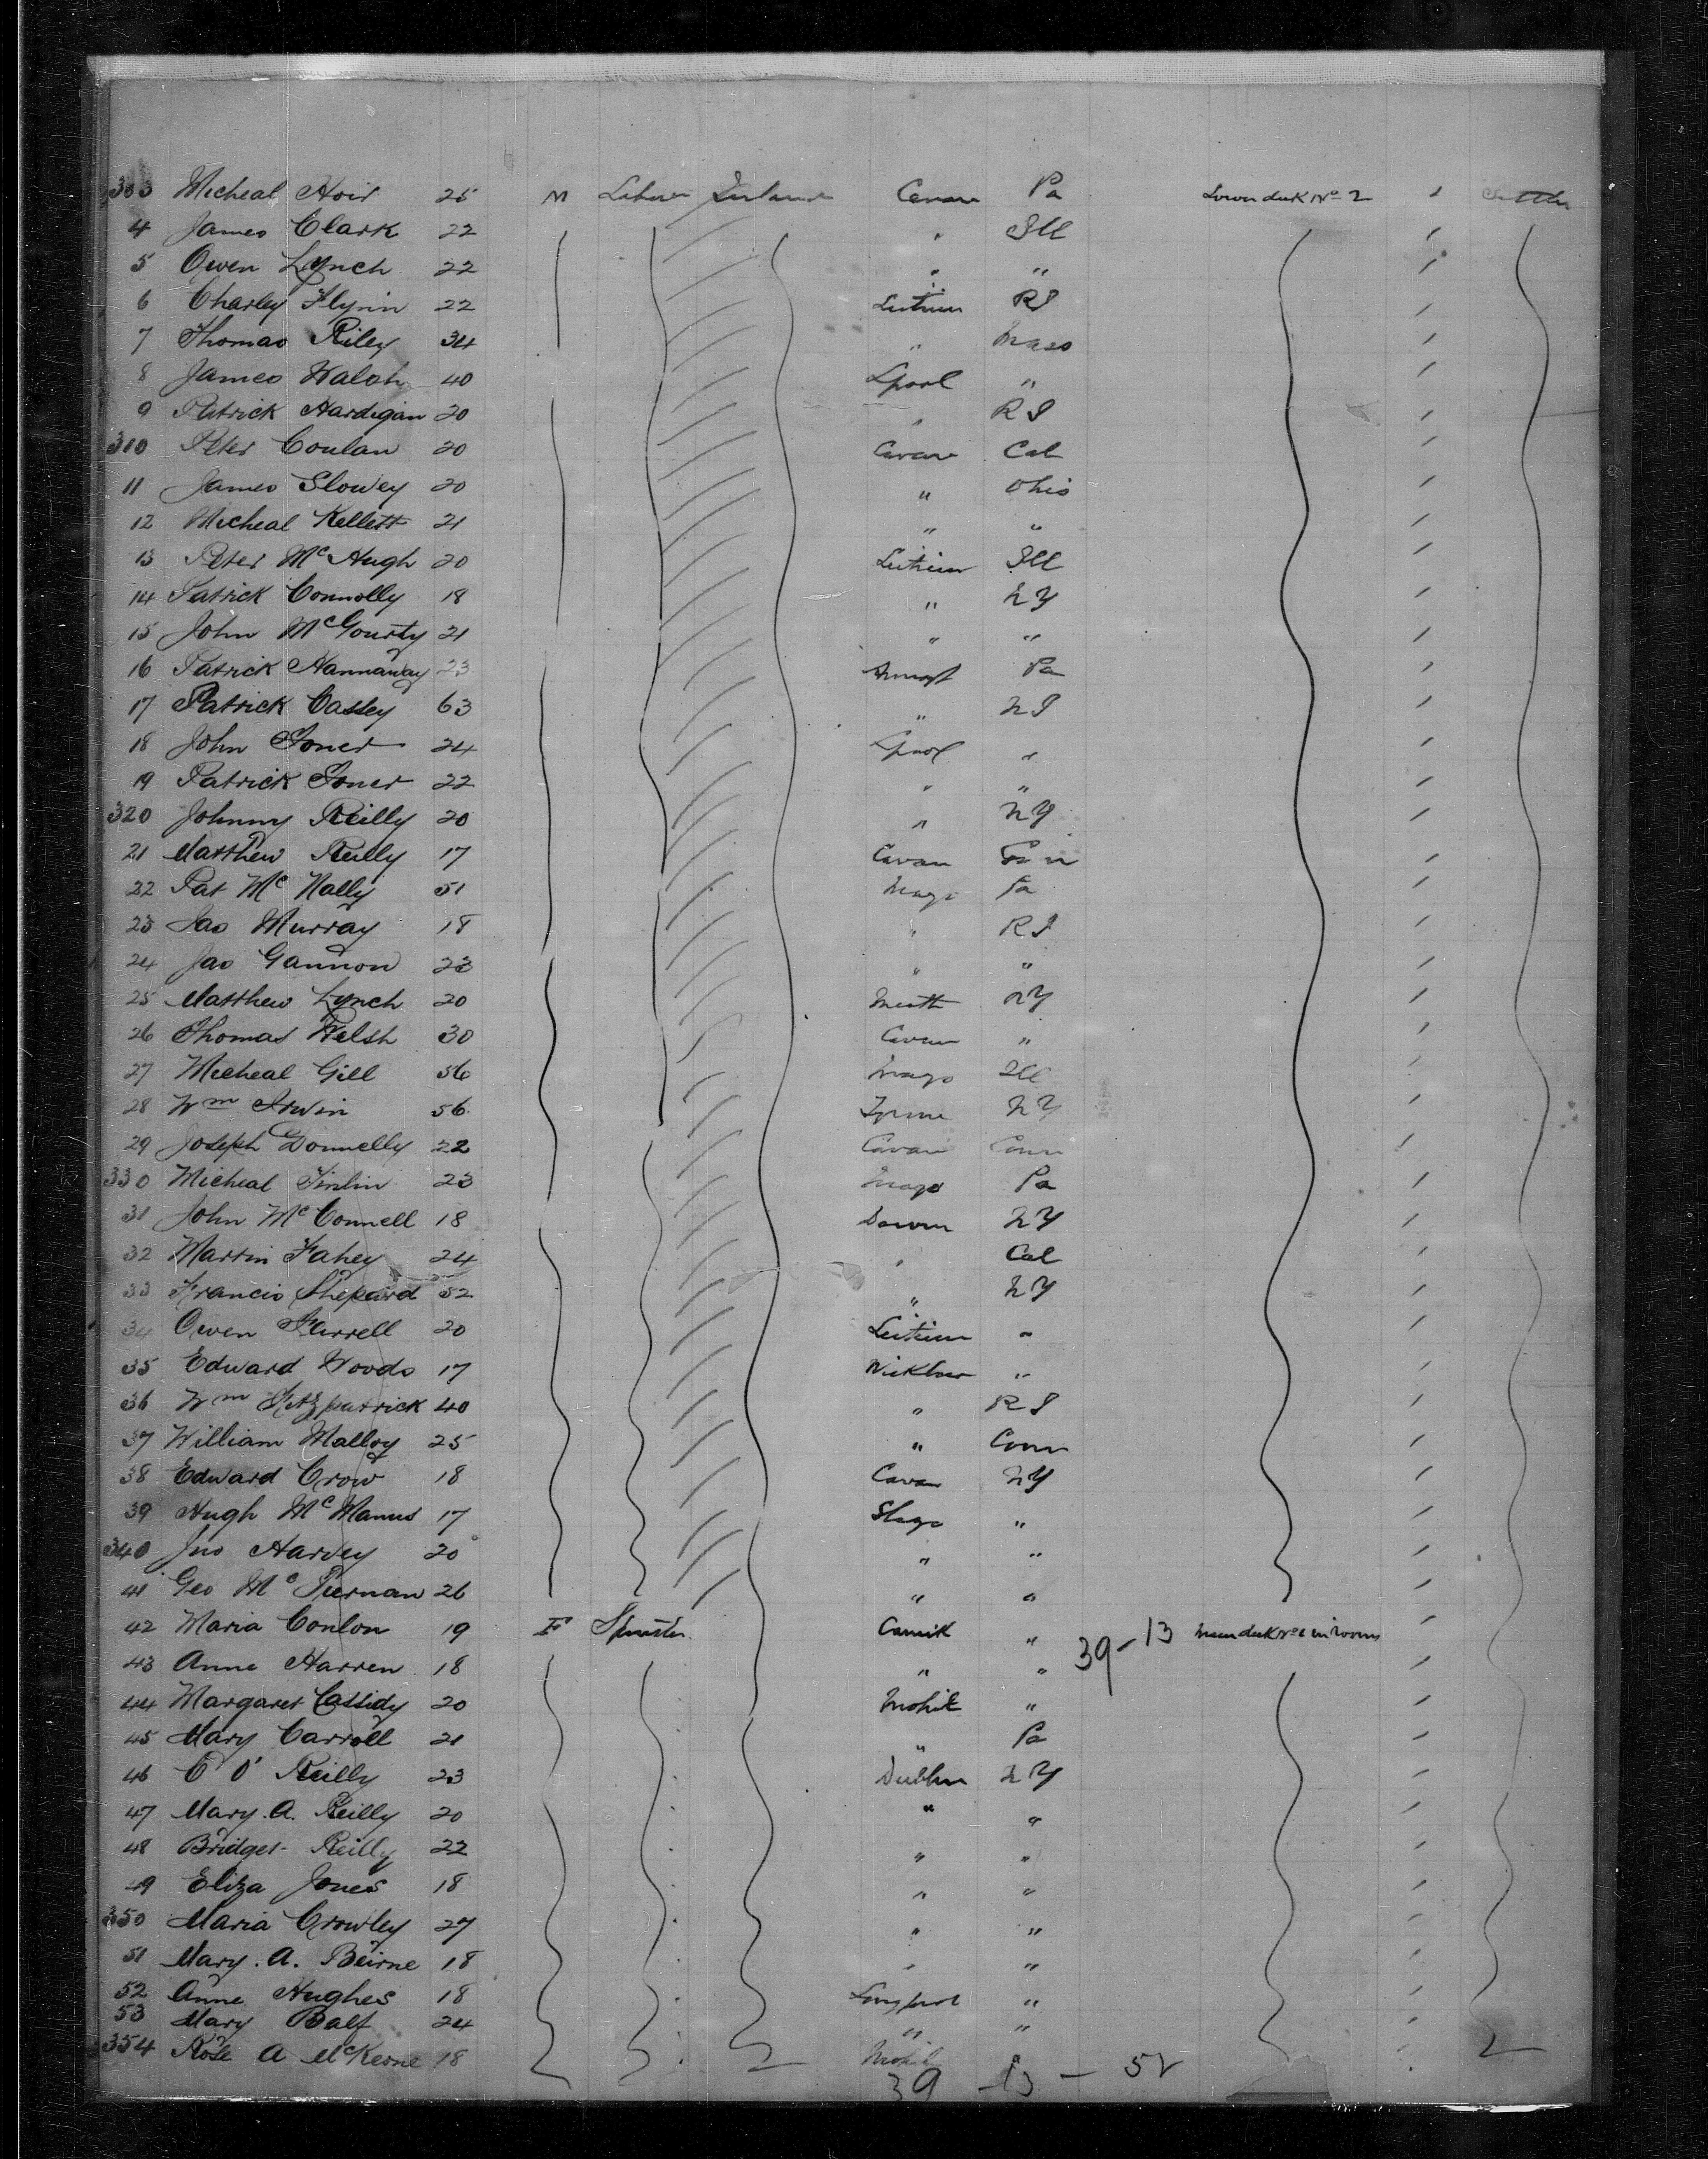 303 Micheal Hoir 25 M Labour Ireland Cavan Pa Lower deck No 2 ′
4 James Clark 22 " Ill ′
5 Owen Lynch 22 " " ′
6 Charley Flynn 22 Leitrim RI ′
7 Thomas Riley 34 " Mass ′
8 James Walsh 40 Lpool " ′
9 Patrick Hardigan 20 " RI ′
310 Peter Coulan 20 Cavan Cal ′
11 James Slowey 20 " Ohio ′
12 Micheal Kellett 21 " " ′
13 Peter McHugh 20 Leitrim Ill ′
14 Patrick Connolly 18 " NY ′
15 John McGourty 21 " " ′
16 Patrick Hannaway 23 Armagh Pa ′
17 Patrick Casley 63 " NJ ′
18 John Toner 24 Lpool " ′
19 Patrick Toner 22 " " ′
320 Johnny Reilly 20 " NY ′
21 Matthew Reilly 17 Cavan ′
22 Pat McNally 51 Mayo Pa ′
23 Jas Murray 18 " RI ′
24 Jas Gannon 23 " " ′
25 Matthew Lynch 20 Meath NY ′
26 Thomas Welsh 30 Cavan " ′
27 Micheal Gill 56 Mayo Ill ′
28 Wm Irwin 56 Tyrone NY ′
29 Joseph Donnelly 22 Cavan Conn ′
330 Micheal Tinlin 23 Mayo Pa ′
31 John McConnell 18 Down NY ′
32 Martin Fahey 24 " Cal ′
33 Francis Shepard 52 " NY ′
34 Owen Farrell 20 Leitrim " ′
35 Edward Woods 17 Wicklow " ′
36 Wm Fitzpatrick 40 " RI ′
37 William Malloy 25 " Conn ′
38 Edward Crow 18 Cavan NY ′
39 Hugh McManus 17 Sligo " ′
340 Jno Harvey 20 " " ′
41 Geo McTiernan 26 " " ′
42 Maria Conlon 19 F Spinster Carrick " 39-13 Main deck No 6 in rooms ′
43 Anne Harren 18 " " ′
44 Margaret Cassidy 20 Mohill " ′
45 Mary Carroll 21 " Pa ′
46 C O'Reilly 23 Dublin NY ′
47 Mary. A. Reilly 20 " " ′
48 Bridget Reilly 22 " " ′
49 Eliza Jones 18 " " ′
350 Maria Crowley 27 " " ′
51 Mary. A. Beirne 18 " " ′
52 Anne Hughes 18 Longford " ′
53 Mary Balf 24 " " ′
354 Rose A McKeone 18 Mohill " ′
39 - 13 - 52